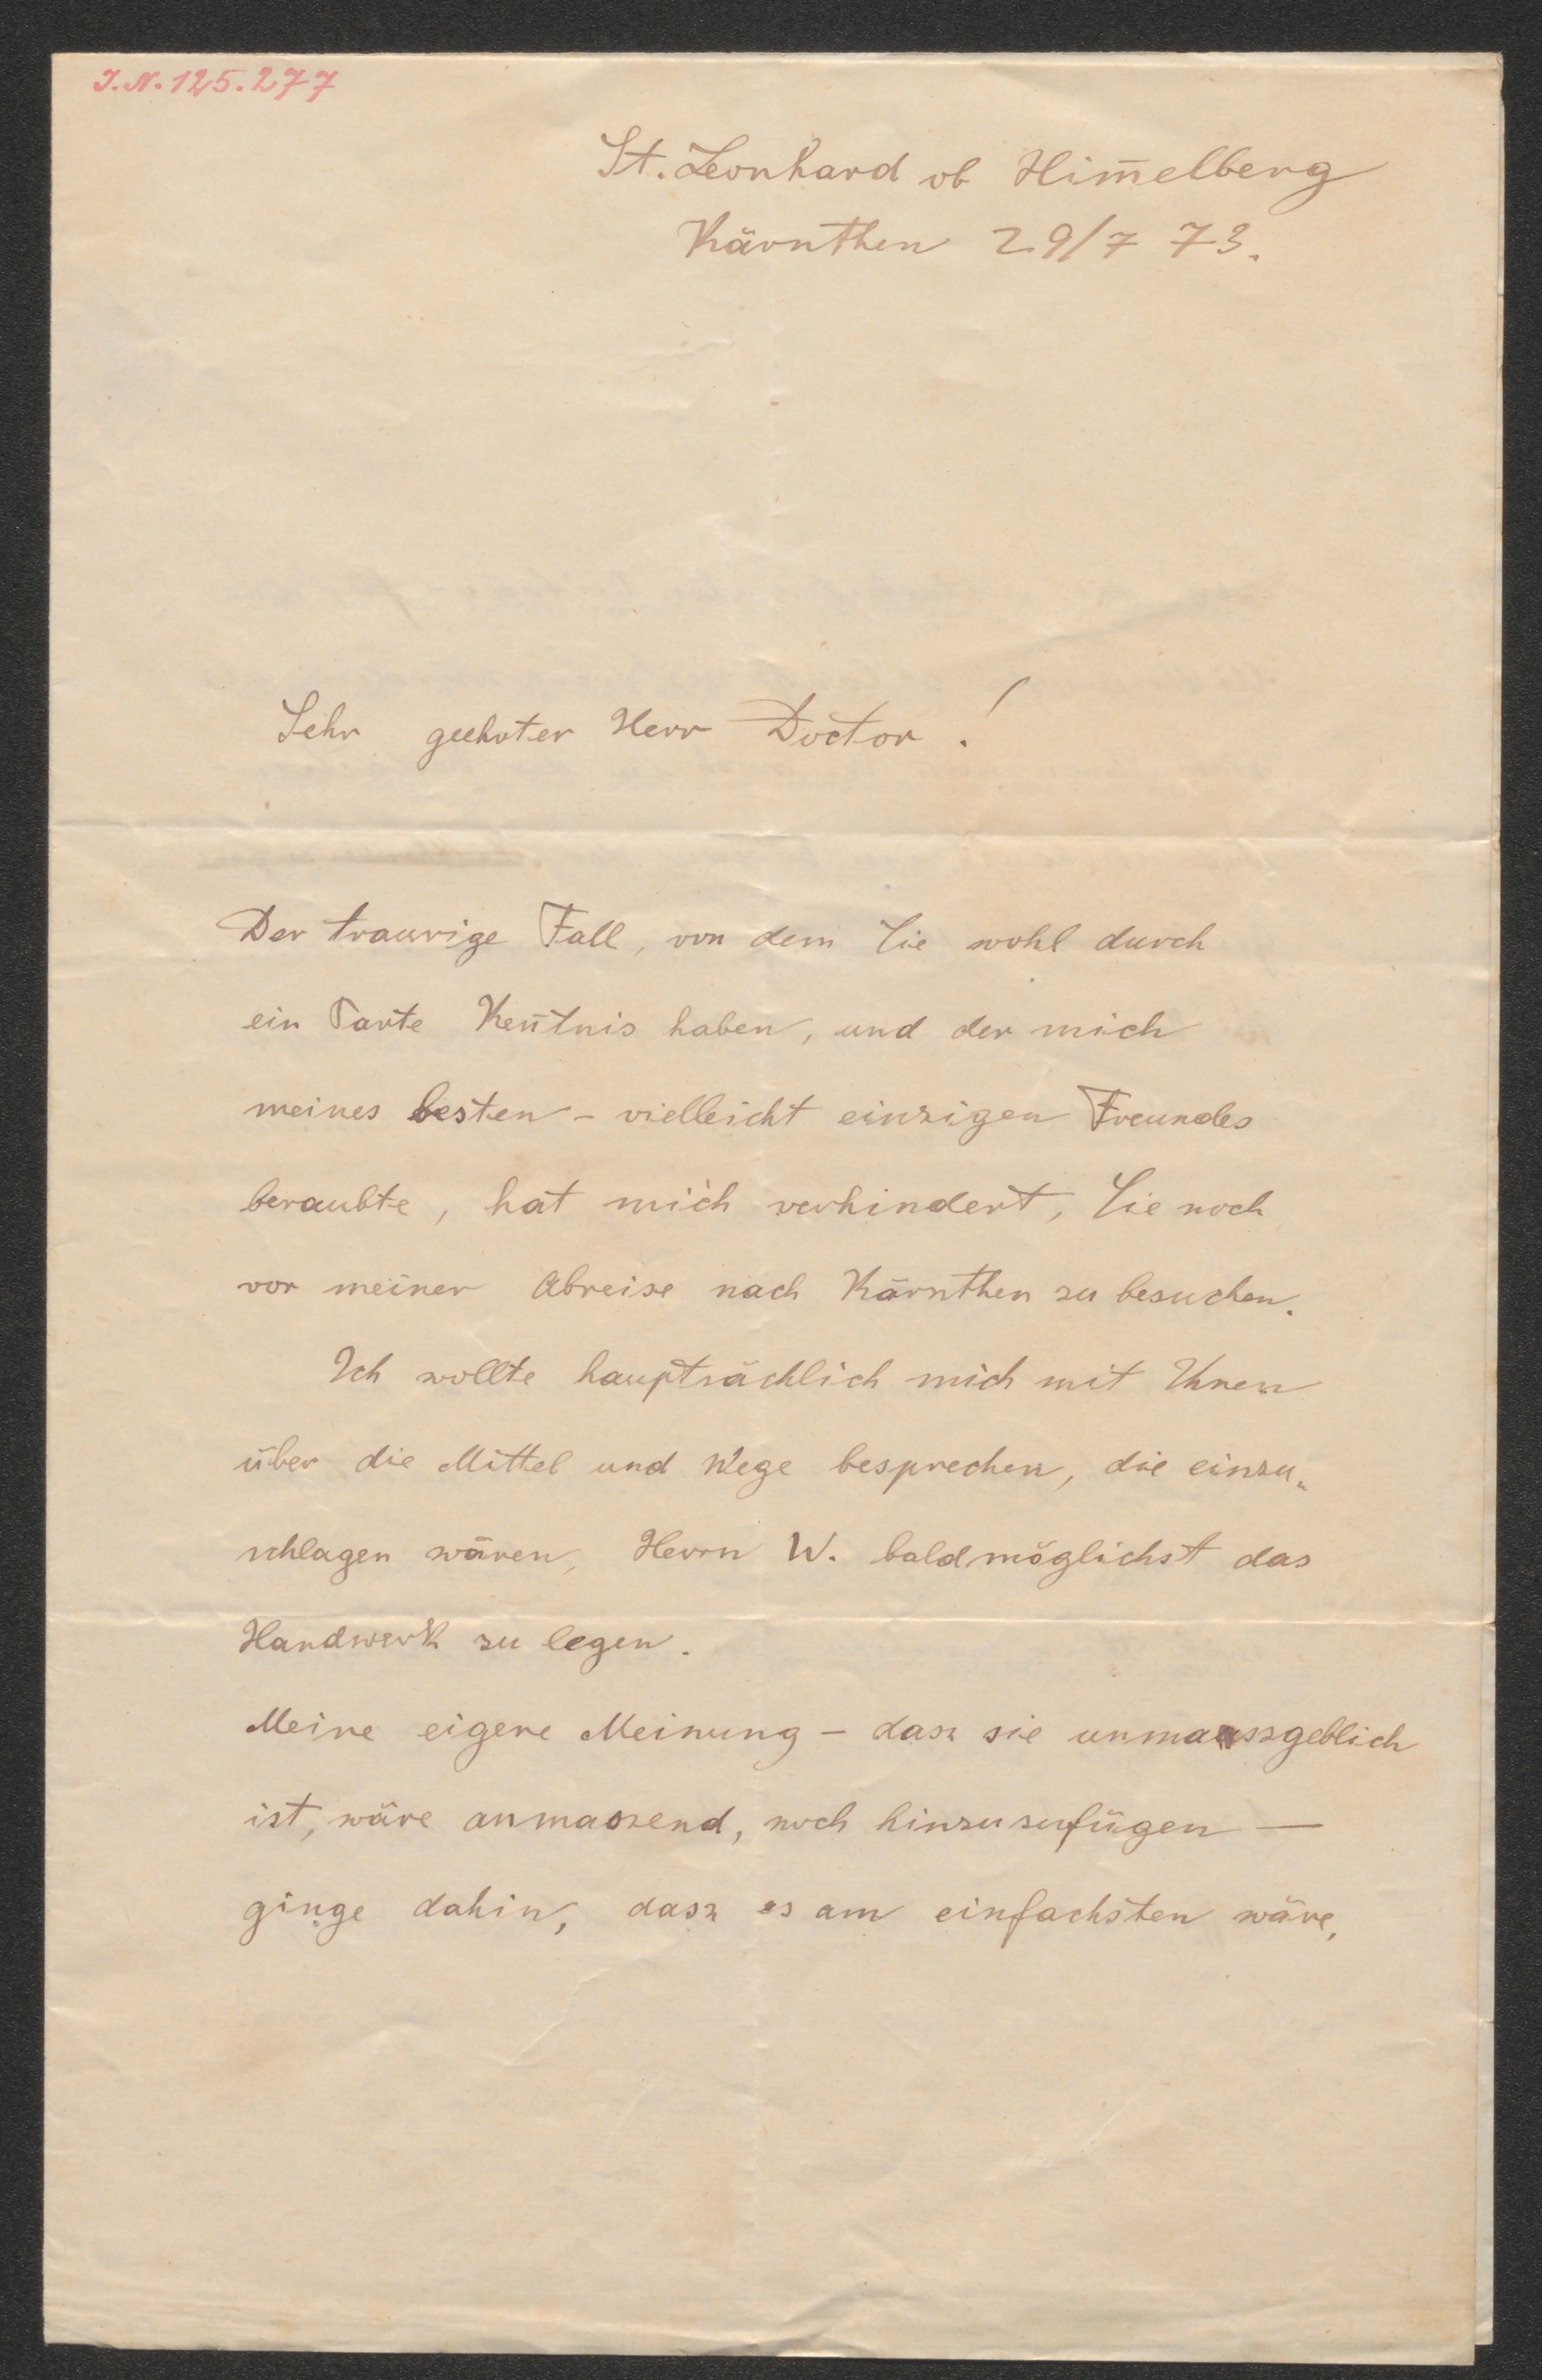 J.N. 125.277
St. Leonhard ob Him̅elberg
Kärnthen 29/7 73.
Sehr geehrter Herr Doctor!
Der traurige Fall, von dem Sie wohl durch
ein Parte Ken̅tnis haben, und der mich
meines besten – vielleicht einzigen Freundes
beraubte, hat mich verhindert, Sie noch
vor meiner Abreise nach Kärnthen zu besuchen.
Ich wollte hauptsächlich mich mit Ihnen
über die Mittel und Wege besprechen, die einzu„
schlagen wären, Herrn W. baldmöglichst das
Handwerk zu legen.
Meine eigene Meinung – dasz sie unmaaszgeblich
ist, wäre anmaszend, noch hinzuzufügen –
ginge dahin, dasz es am einfachsten wäre,